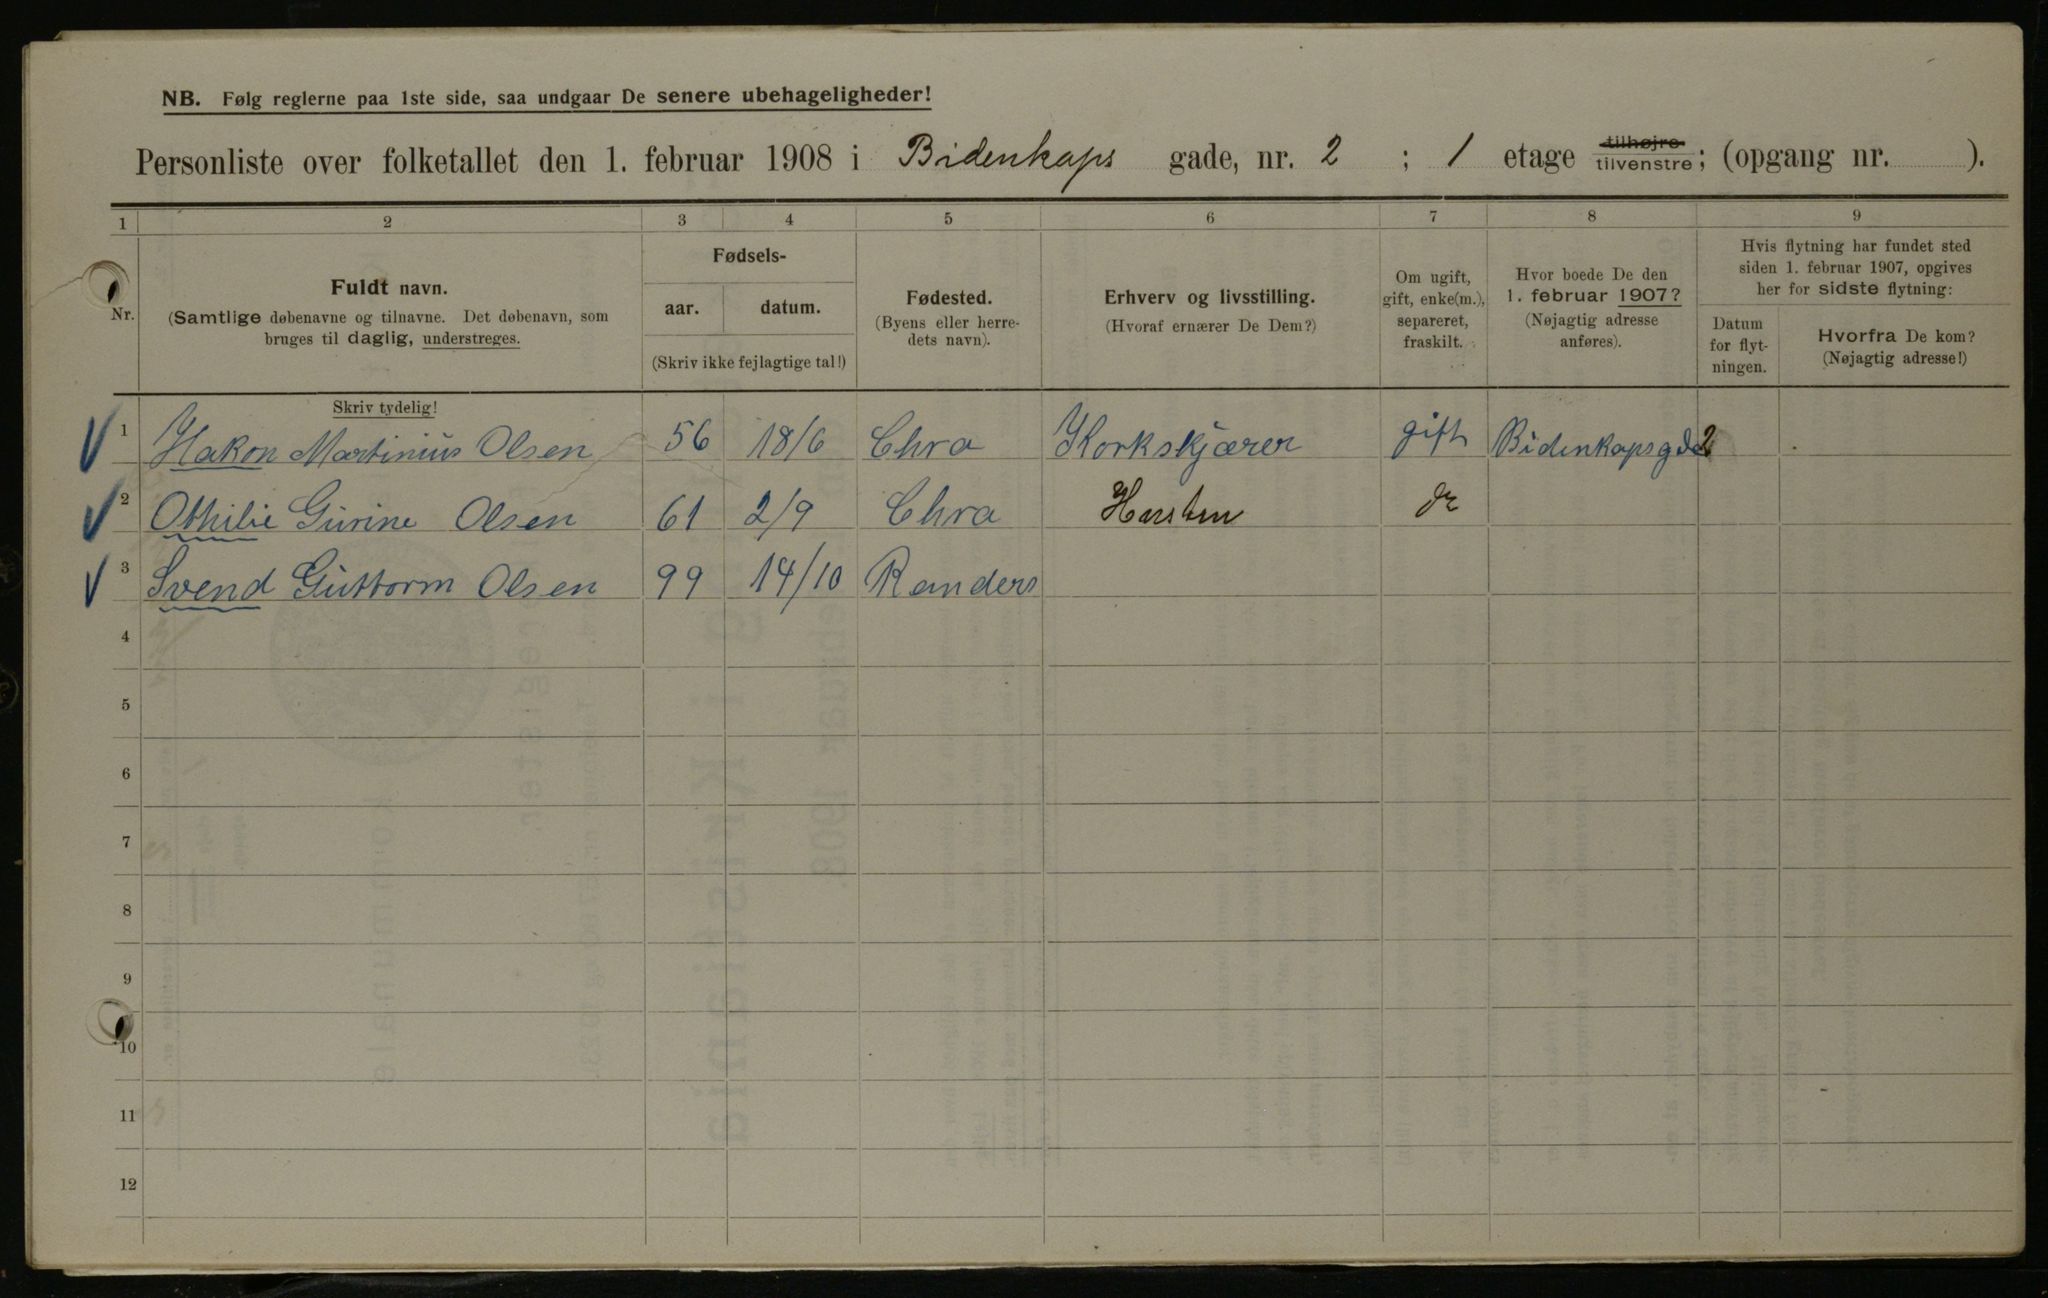 NB. Følg reglerne paa 1ste side, saa undgaar De senere ubehageligheder!
Personliste over folketallet den 1. februar 1908 i Bidenkaps gade, nr. 2 ; 1 etage tilhøjre tilvenstre; (opgang nr. ).
1 2 3 4 5 6 7 8 9
Nr.
Fuldt navn.
(Samtlige døbenavne og tilnavne. Det døbenavn, som
bruges til daglig, understreges.
Skriv tydelig!
Fødsels-
aar. datum.
(Skriv ikke fejlagtige tal!)
Fødested.
(Byens eller herre-
dets navn).
Erhverv og livsstilling.
(Hvoraf ernærer De Dem?)
Om ugift,
gift, enke(m.),
separeret,
fraskilt.
Hvor boede De den
1. februar 1907?
(Nøjagtig adresse
anføres).
Hvis flytning har fundet sted
siden 1. februar 1907, opgives
her for sidste flytning:
Datum
for flyt-
ningen.
Hvorfra De kom?
(Nøjagtig adresse!)
1 Hakon Martinius Olsen 56 18/6 Chra Korkskjærer gift Bidenkapsgde 2
2 Othilie Gurine Olsen 61 2/9 Chra
3 Svend Guttorm Olsen 99 14/10 Randers
4
5
6
7
8
9
10
11
12